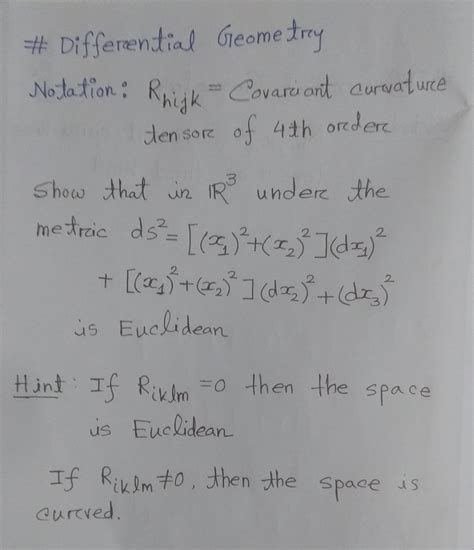 # Differential Geometry
Notation: Rₕᵢⱼₖ = Covariant curvature
tensor of 4th order
Show that in ℝ³ under the
metric ds² = [(x₁)²+(x₂)²](dx₁)²
+ [(x₁)²+(x₂)²](dx₂)²+(dx₃)²
is Euclidean
Hint: If Rᵢₖₗₘ =0 then the space
is Euclidean
If Rᵢₖₗₘ≠0, then the space is
curved.